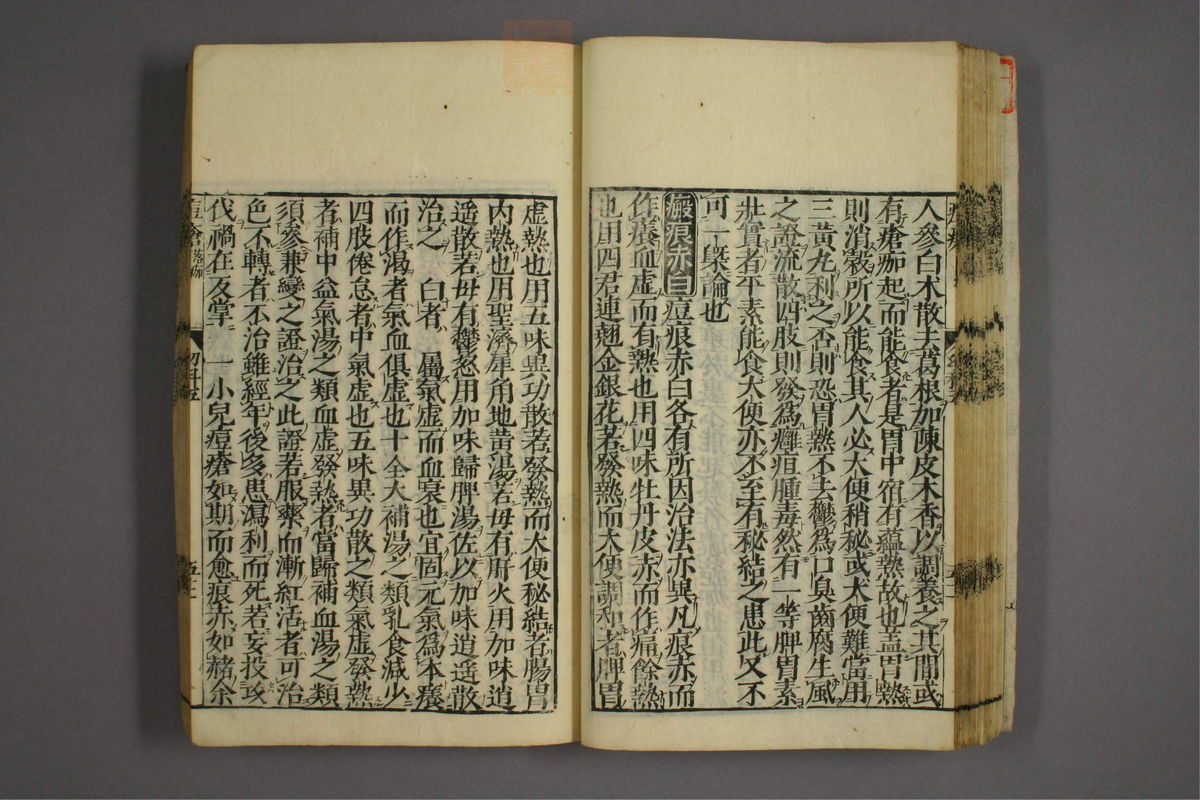 人參白朮散去葛根加陳皮木香以調養之其間或
有瘡痂起而能食者是胃中宿有蘊熱故也蓋胃熱
則消穀所以能食其人必大便稍秘或大便難當用
三黃丸利之否則恐胃熱不去鬱爲口臭齒腐生風
之證流散四肢則發爲癰疽腫毒然有一等脾胃素
壯實者平素能食大便亦不至有秘結之患此又不
可一槩論也
瘢痕赤白痘痕赤白各有所因治法亦異凡痕赤而
作癢血虛而有熱也用四味牡丹皮赤而作痛餘熱
也用四君連翹金銀花若發熱而大便調和者脾胃
虛熱也用五味異功散若發熱而大便秘結者腸胃
内熱也用聖濟犀角地黃湯若母有肝火用加味逍
遥散若母有鬱怒用加味歸脾湯佐以加味逍遥散
治之 白者 屬氣虛而血衰也宜固元氣爲本癢
而作渴者氣血俱虛也十全大補湯之類乳食減少
四肢倦怠者中氣虛也五味異功散之類氣虛發熱
者補中益氣湯之類血虛發熱者當歸補血湯之類
須參兼變之證治之此證若服藥而漸紅活者可治
色不轉者不治雖經年後多患瀉利而死若妄投攻
伐禍在反掌 一小兒痘瘡如期而愈痕赤如赭余